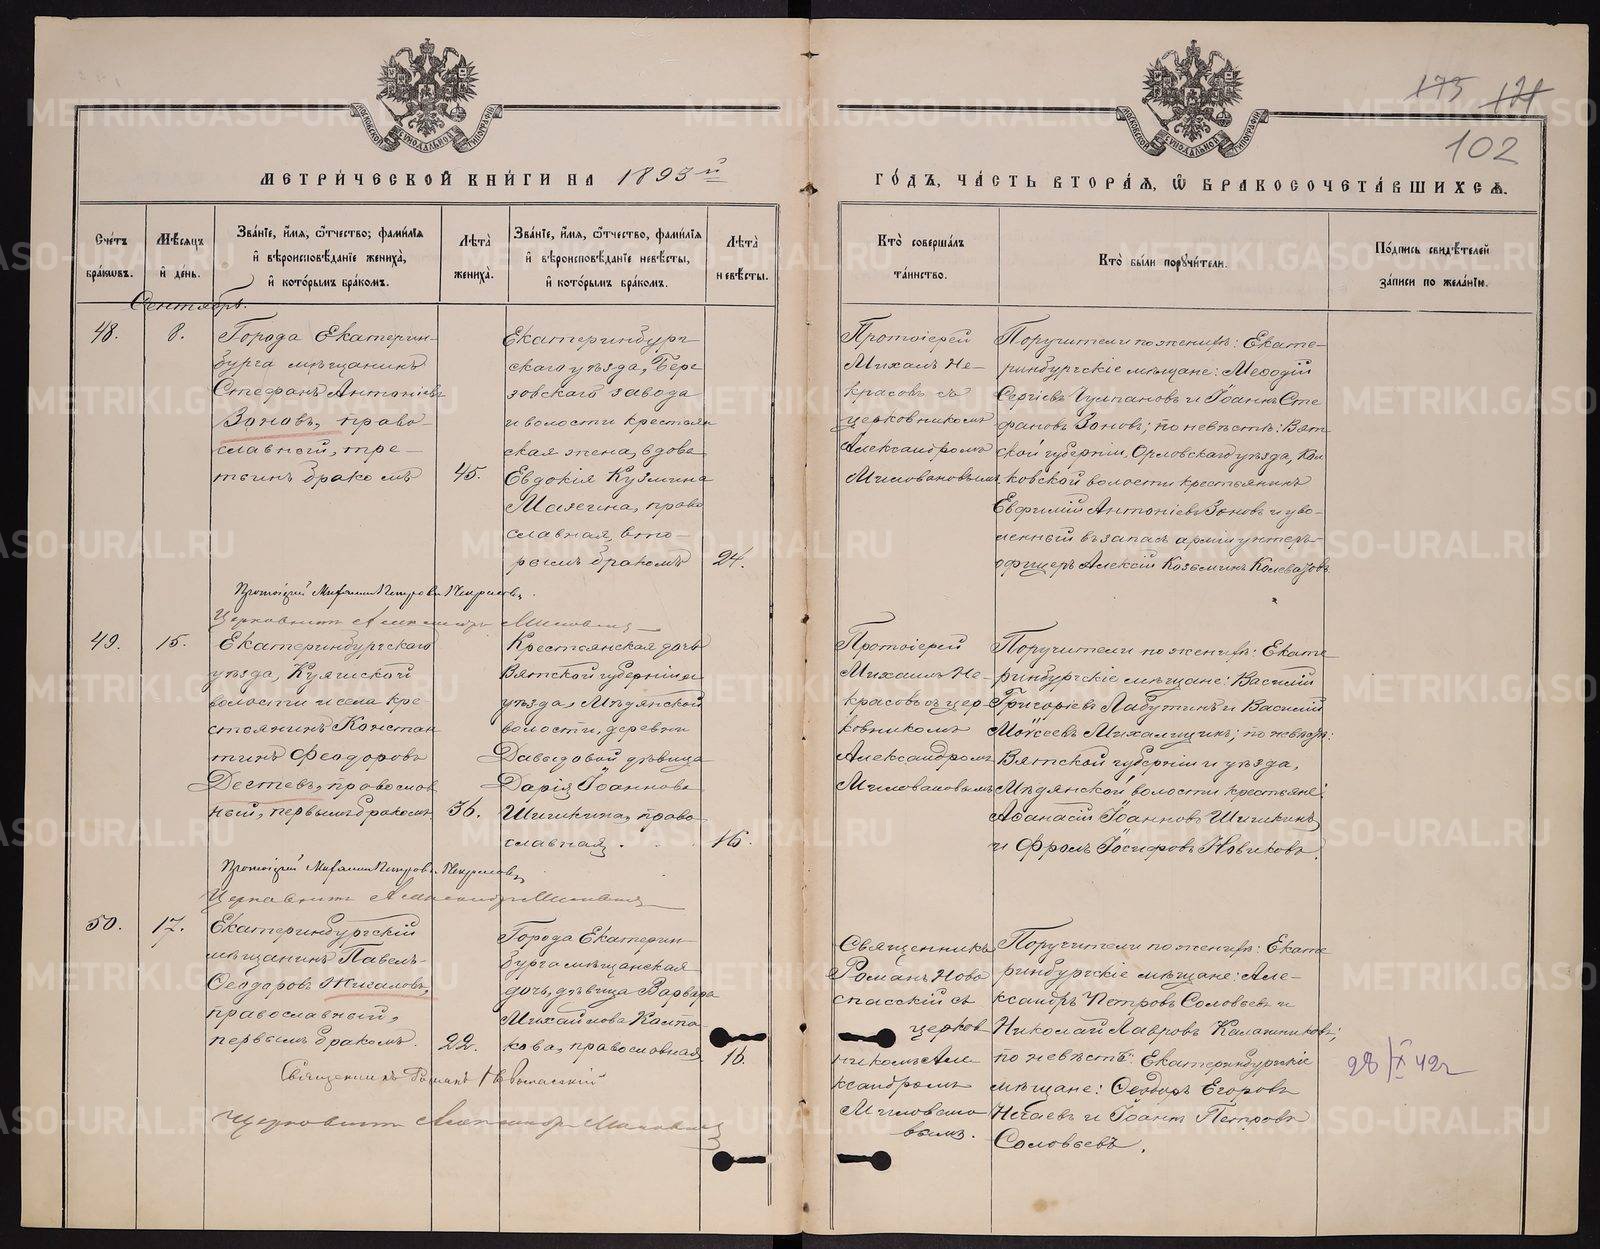 175 121
102
МЕТРИ́ЧЕСКОЙ КНИ́ГИ НА 1893й
ГО́ДЪ, ЧА́СТЬ ВТОРА́Я, Ѽ БРАКОСОЧЕТА́ВШИХСЯ.
Сче́тъ бра́ковъ.
Мѣ́сяцъ и де́нь.
Зва́нїе, и́мя, о́тчество, фами́лїя и вѣроисповѣ́данїе жениха̀, и кото́рымъ бра́комъ.
Лѣта̀ жениха̀.
Зва́нїе, и́мя, о́тчество, фами́лїя и вѣроисповѣ́данїе невѣ́сты, и кото́рымъ бра́комъ.
Лѣта̀ невѣ́сты.
Кто̀ соверша́лъ та́инство.
Кто̀ бы́ли поручи́тели.
По́дпись свидѣ́телей за́писи по жела́нїю.
Сентябрь.
48.
8.
Города Екатерин-
бурга мѣщанинъ
Стефанъ Антонiевъ
Зоновъ, право-
славный, тре-
тьимъ бракомъ
45.
Екатеринбург
скаго уѣзда, Бере
зовскаго завода
и волости крестьян
ская жена, вдова
Евдокiя Кузмина
Мазгина, право
славная, вто-
рымъ бракомъ
24.
Протоiерей
Михаилъ Не-
красовъ съ
церковникомъ
Александромъ
Миловановымъ
Поручители по женихѣ: Екате-
ринбургскiе мѣщане: Меѳодiй
Сергѣевъ Чулпановъ и Iоаннъ Сте
фановъ Зоновъ; по невѣстѣ: Вят
ской губернiи, Орловскаго уѣзда,
ковской волости крестьянинъ
Евфимiй Антонiевъ Зоновъ и уво-
ленный въ запасъ армiи унтеръ-
офицеръ Алексiй Козьминъ
Протоiерей Михаилъ Петровъ Некрасовъ.
Церковникъ Александръ Миловановъ
49.
15.
Екатеринбургскаго
уѣзда, Куяшской
волости и села кре-
стьянинъ Констан
тинъ Феодоровъ
Дегтевъ, православ
ный, первымъ бракомъ
36.
Крестьянская дочь
Вятской губернiи и
уѣзда, Мѣдянской
волости, деревни
Давыдовой дѣвица
Дарiя Iоаннова
Шишкина, право-
славная.
16.
Протоiерей
Михаилъ Не-
красовъ съ цер-
ковникомъ
Александромъ
Миловановымъ
Поручители по женихѣ: Екате
ринбургскiе мѣщане: Василiй
Григорiевъ Лабутинъ и Василiй
Моѵсеевъ Михалицинъ; по невѣстѣ:
Вятской губернiи и уѣзда,
Мѣдянской волости крестьяне:
Аѳанасiй Iоанновъ Шишкинъ
и Фролъ Iосифовъ Новиковъ.
Протоiерей Михаилъ Петровъ Некрасовъ
Церковникъ Александръ Миловановъ
50.
17.
Екатеринбургскiй
мѣщанинъ Павелъ
Ѳеодоровъ Жигаловъ,
православный,
первымъ бракомъ.
22.
Города Екатерин-
бурга мѣщанская
дочь, дѣвица Варвара
Михайлова Колпа-
кова, православная
16.
Священникъ
Романъ Ново
спасскiй съ
церков
никомъ Але-
ксандромъ
Миловано
вымъ.
Поручители по женихѣ: Екате
ринбургскiе мѣщане: Але-
ксандръ Петровъ Соловьевъ и
Николай Лавровъ Калашниковъ;
по невѣстѣ: Екатеринбургскiе
мѣщане: Ѳеодоръ Егоровъ
и Iоаннъ Петровъ
Соловьевъ.
28/X 42г
Священникъ Романъ Новоспасскiй
Церковникъ Александръ Миловановъ
METRIKI.GASO-URAL.RU